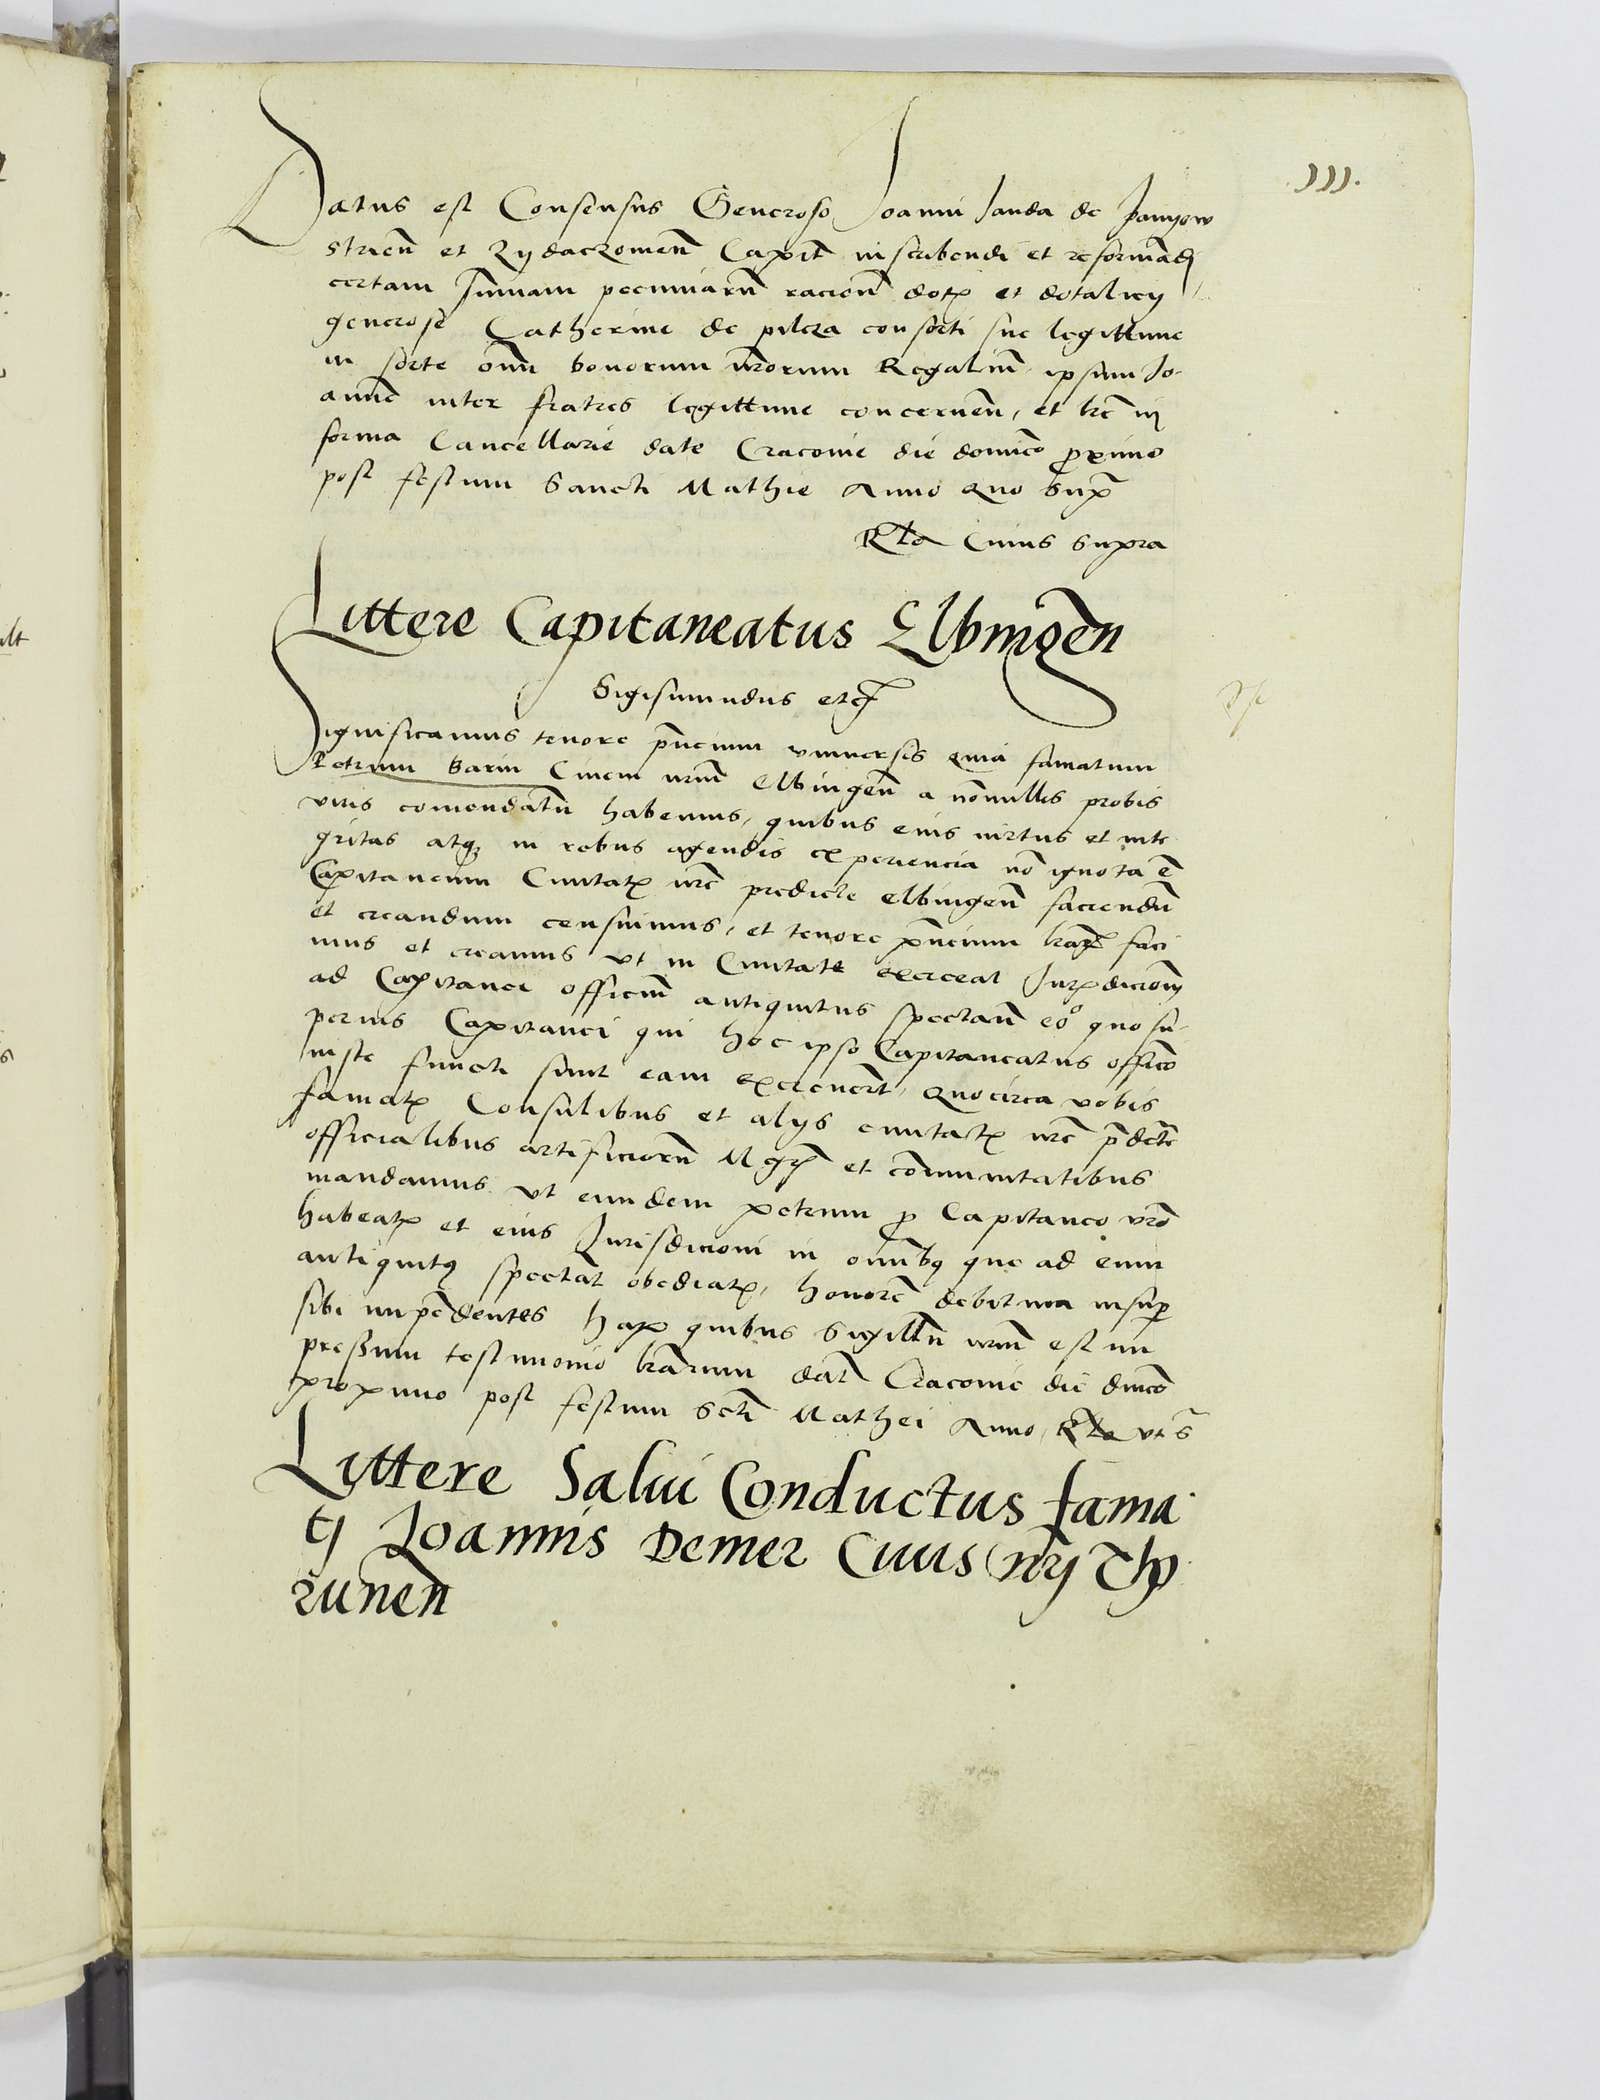 .111.
Datus est Consensus Generoso Joanni Janda de Janyow
strien̄ et Zydaczowien̄ Capit̄ inscribendi et reformādi
certam sum̄am pecuniarū racioē dotꝭ et dotalicij
generose Catherine de pilcza consorti sue legittime
in sorte om̄i bonorum nr̄orum Regaliū ipsum Jo-
annē inter fratres legittime concernen̄, et lrē in
forma Cancellarie date Cracovie die domīco proximo
post festum Sancti Mathie Anno quo supͣ
Rl̄a Cuius supra
Littere Capitaneatus Elbingēn
Sigismundus etcꝭ
Significamus tenore pn̄cium vniuersis quia famatum
Petrum Barin Ciuem nr̄m Elbingen̄ a nōnullis probis
viris comendatū habemus, quibus eius virtus et inte
gritas atqꝫ in rebus agendis experiencia nō ignota ē
Capitaneum Ciuitatꝭ nr̄e predicte elbingen̄ faciendū
et creandum censuimus, et tenore pn̄cium lr̄arꝭ faci
mus et creamus vt in Ciuitate exerceat Jurꝭdicioēm
ad Capitanei officiū antiquitus spectan̄ eo quo su-
periūs Capitanei qui hoc ipso Capitaneatus officō
iuste functi sunt eam exercuerūt, quocirca vobis
famatꝭ Consulibus et alijs ciuitatꝭ nr̄e p̄dcte
officialibus artificiorū Mgrꝭ et cōmunitatibus
mandamus vt eundem petrum ꝓ Capitaneo vr̄o
habeatꝭ et eius Jurisdicioni in om̄ibꝫ que ad eum
antiquitꝫ spectāt obediatꝭ, honorē debitum insuꝑ
sibi impēdentes harꝭ quibus sigillū nr̄m est im
pressum testimonio lr̄arum dat̄ Cracovie die dn̄ico
proximo post festum sctī Mathei Anno, Rl̄a vt sͣ
Littere Salui Conductus fama
tj Joannis Demer Ciuis nr̄j Tho
runen̄